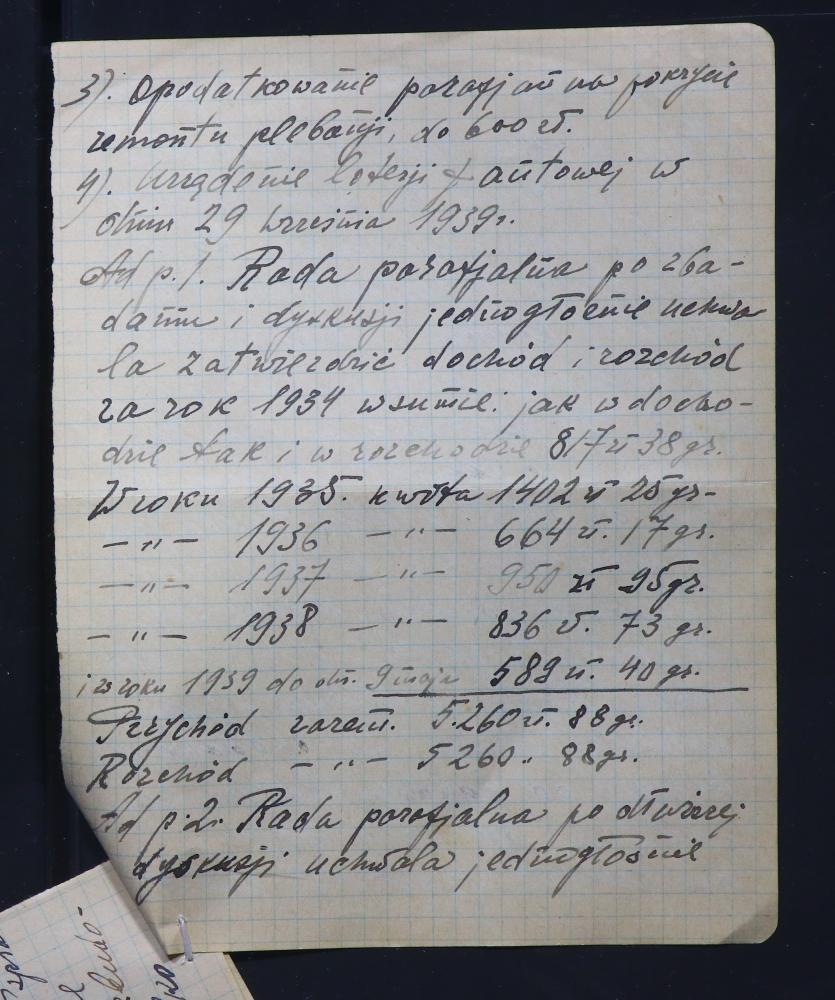 3). Opodatkowanie parafjan na pokrycie
remontu plebanji, do 600 zł.
4). Urządzenie loterji fantowej w
dniu 29 września 1939 r.
Ad p. 1. Rada parafjalna po zba-
daniu i dyskusji jednogłośnie uchwa
la zatwierdzić dochód i rozchód
za rok 1934 w sumie: jak w docho-
dzie tak i w rozchodzie 817 zł 38 gr.
W roku 1935. kwota 1402 zł 25 gr-
— „ — 1936 — „ — 664 zł. 17 gr.
— „ — 1937 — „ — 950 zł 95 gr.
— „ — 1938 — „ — 836 zł. 73 gr.
i w roku 1939 do dn. 9 maja 589 zł. 40 gr.
Przychód razem. 5.260 zł. 88 gr.
Rozchód — „ — 5260 „ 88 gr.
Ad p. 2. Rada parafjalna po dłuższej
dyskusji uchwala jednogłośnie